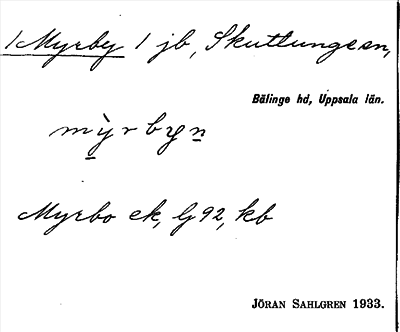 /Myrby 1 jb, Skuttungesn,
Bälinge hd, Uppsala län.
mỳrbyn
Myrbo ek, G92, kb
JÖRAN SAHLGREN 1933.